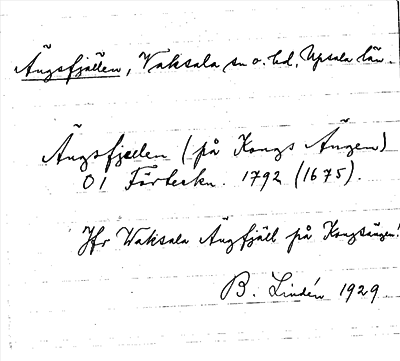 Ängsfjällen, Vaksala sn o. hd, Upsala län.
Ängsfjällen (på Kongs Ängen)
01 Förteckn. 1792 (1675).
Jfr Waksala Ängfjäll på Kongsängen!
B. Lindén 1929